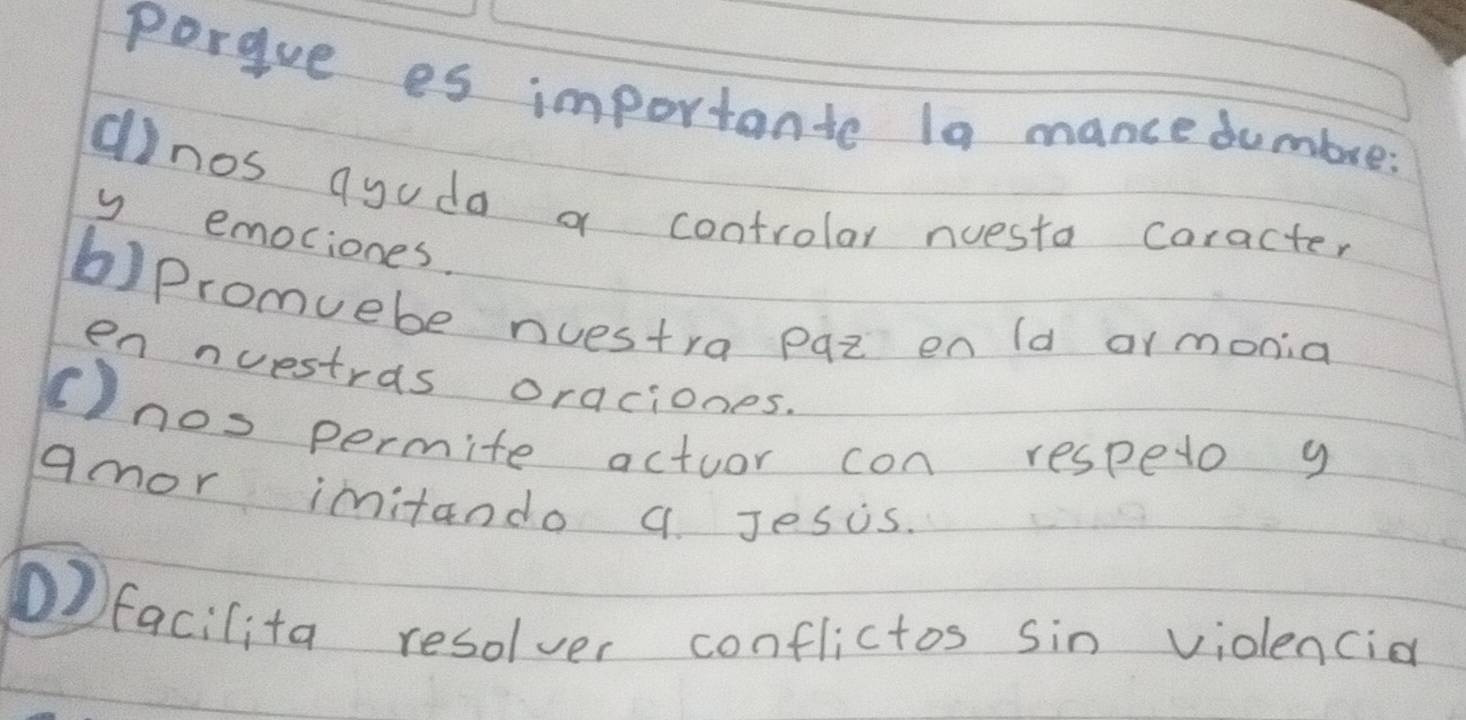 porque es importante la mancedumbre:
a) nos ayuda a controlar nuesta caracter
y emociones.
b) Promuebe nuestra paz en la armonia
en nuestras oraciones.
c) nos permite actuar con respeto y
amor imitando a Jesús.
D) facilita resolver conflictos sin violencia